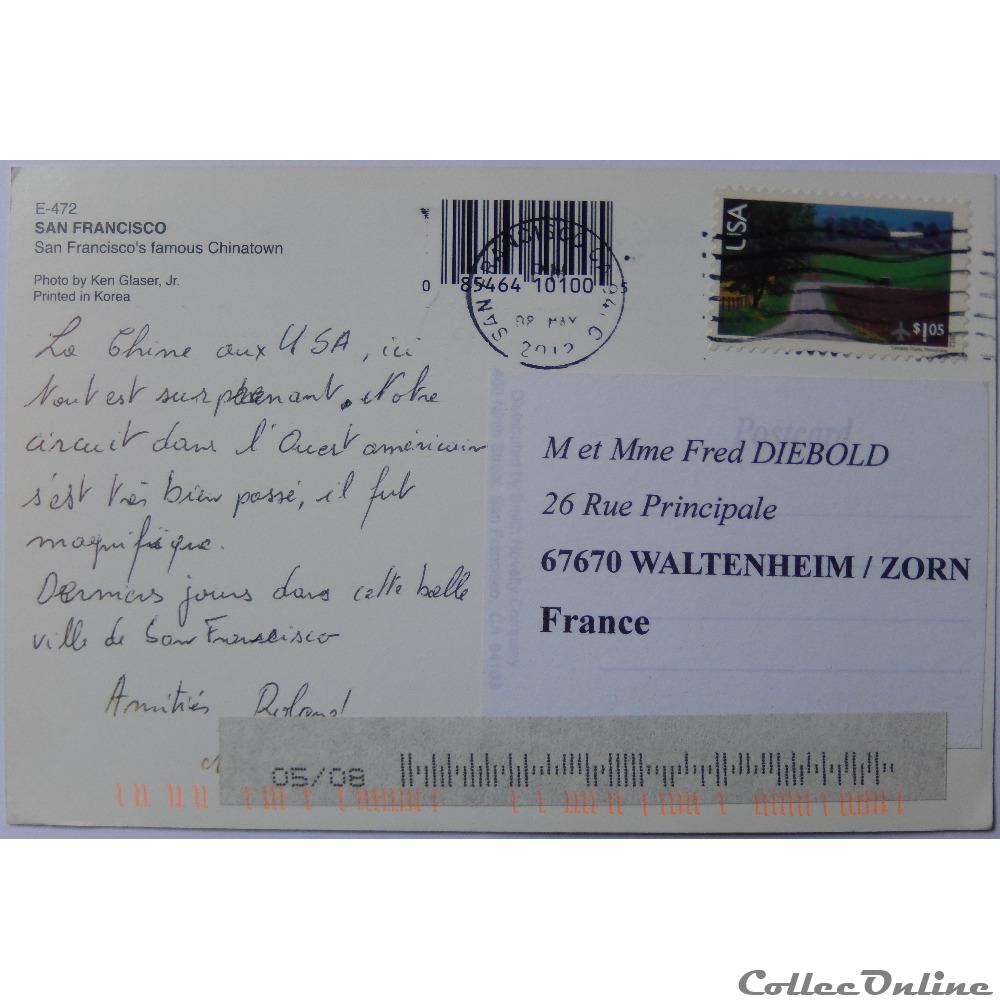 E-472
SAN FRANCISCO
San Francisco's famous Chinatown
Photo by Ken Glaser, Jr.
Printed in Korea
0 85464 10100 05
SAN FRANCISCO CA 941
08 MAY
2012
USA
$1.05
La Chine aux USA, ici
tout est surprenant. Notre
circuit dans l'Ouest américain
s'est très bien passé, il fut
magnifique.
Derniers jours dans cette belle
ville de San Francisco
Amitiés Roland
Postcard
M et Mme Fred DIEBOLD
26 Rue Principale
67670 WALTENHEIM / ZORN
France
05/08
CollecOnline